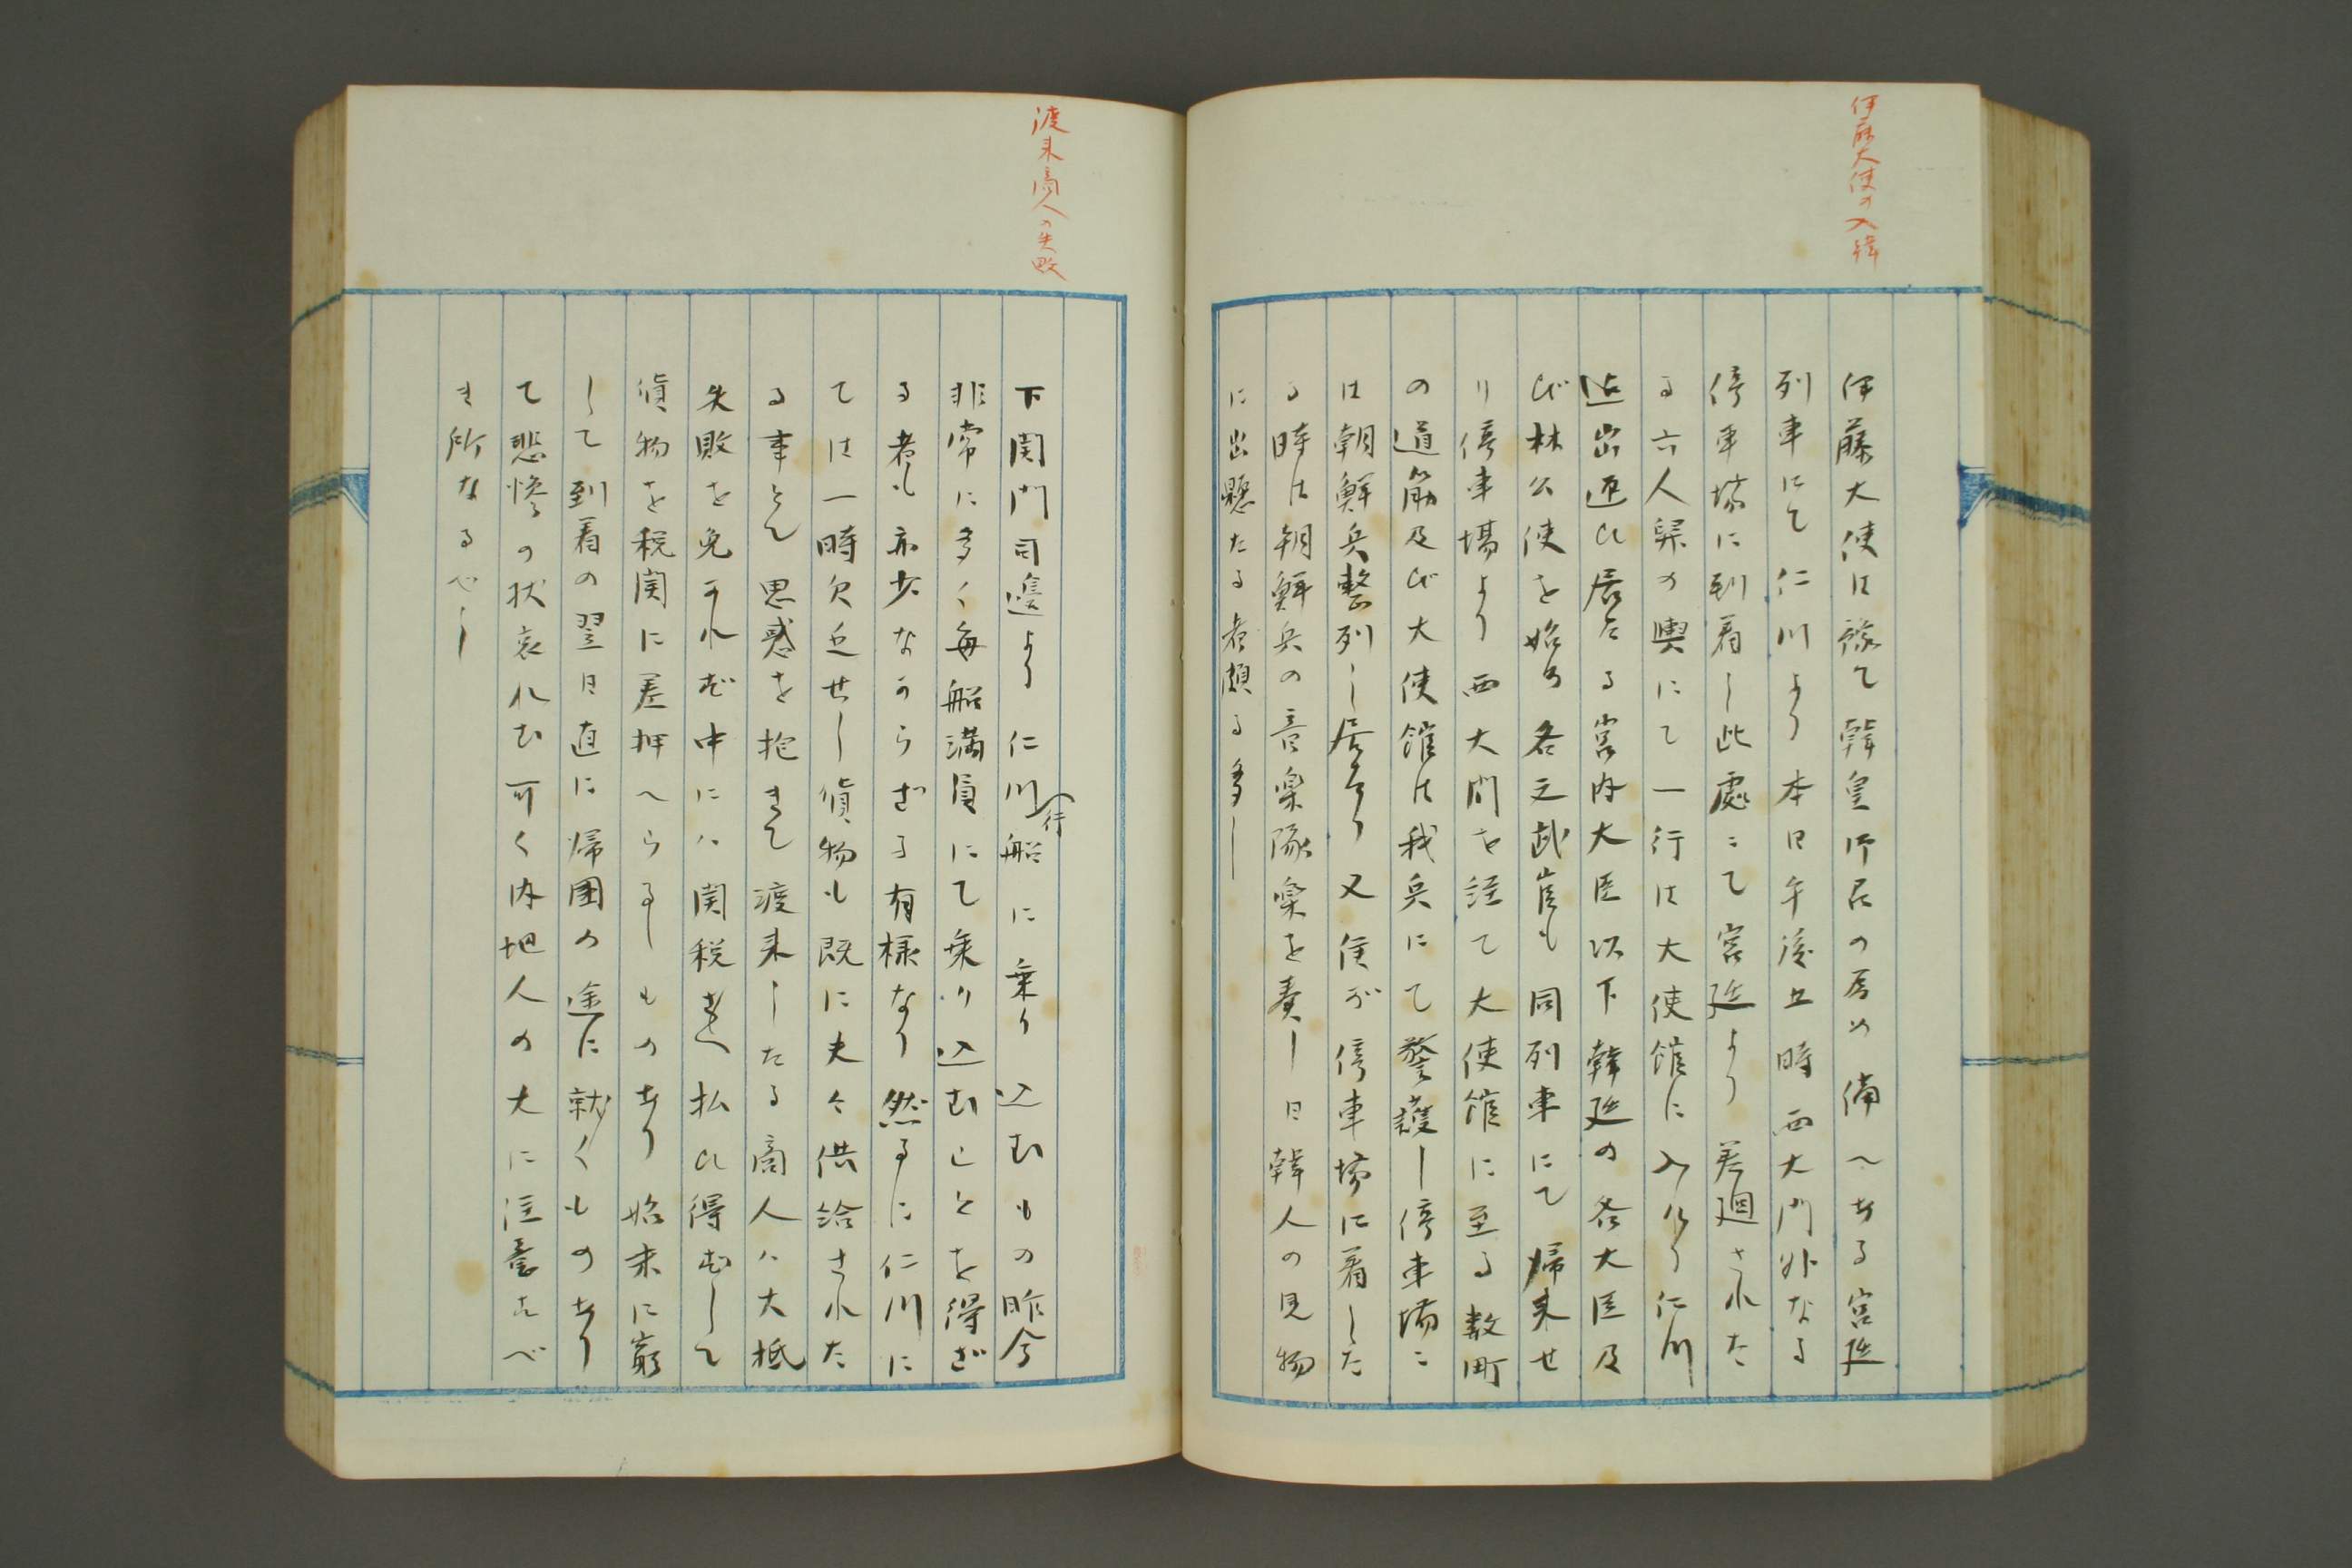 伊藤大使の入韓
伊藤大使は豫て韓皇御召の為め備へある宮廷
列車にて仁川より本日午後五時西大門外なる
停車場に到着し此處にて宮廷より差廻された
る六人舁の輿にて一行は大使館に入れり仁川
迄出迎ひ居たる宮内大臣以下韓廷の各大臣及
び林公使を始め各文武官も同列車にて帰来せ
り停車場より西大門を経て大使館に至る数町
の道筋及び大使館は我兵にて警護し停車場に
は朝鮮兵整列し居たり又侯が停車場に着した
る時は朝鮮兵の音楽隊楽を奏し日韓人の見物
に出懸たる者頗る多し
渡来商人の失敗
下関門司邊より仁川行船に乗り込むもの昨今
非常に多く毎船満員にて乗り込むことを得ざ
る者も亦少なからざる有様なり然るに仁川に
ては一時欠乏せし貨物も既に夫々供給された
る事とて思惑を抱きて渡来したる商人ハ大抵
失敗を免かれず中にハ関税さへ払ひ得ずして
貨物を税関に差押へらるゝものあり始末に窮
して到着の翌日直に帰国の途に就くものあり
て悲惨の状哀れむ可く内地人の大に注意すべ
き所なるべし